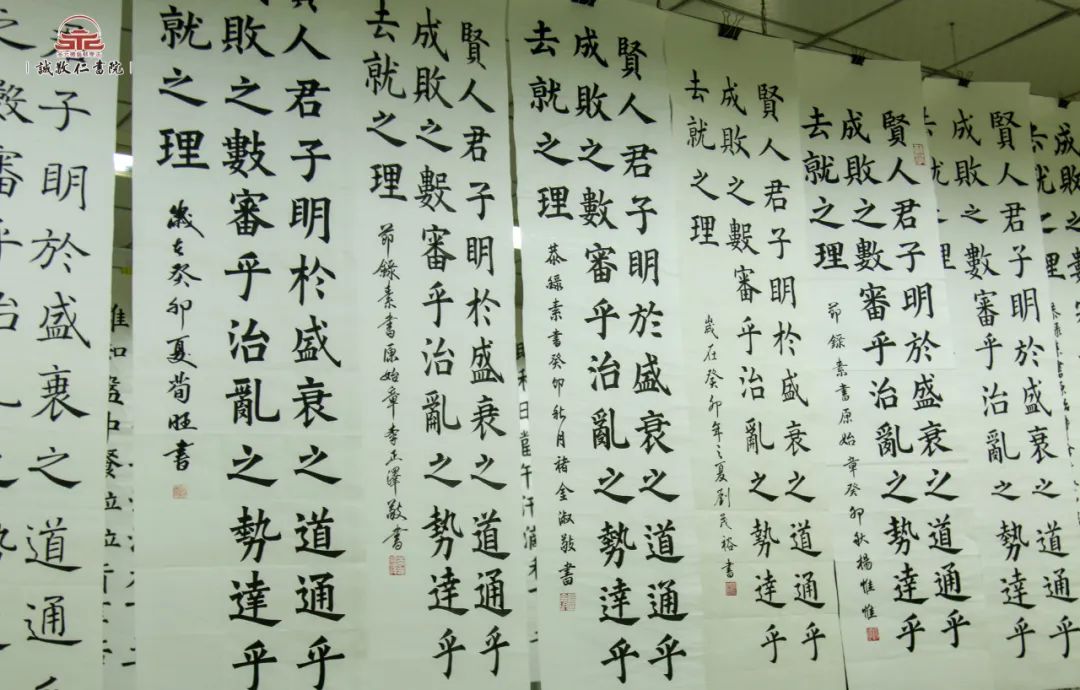 誠敬仁書院
成敗
去就之理
賢人君子明於盛衰之道通乎
成敗之數審乎治亂之勢達乎
去就之理
賢人君子明於盛衰之道通乎
成敗之數審乎治亂之勢達乎
去就之理
節錄素書原始章癸卯秋楊惟惟
賢人君子明於盛衰之道通乎
成敗之數審乎治亂之勢達乎
去就之理
歲在癸卯年之夏劉茂裕書
賢人君子明於盛衰之道通乎
成敗之數審乎治亂之勢達乎
去就之理
恭錄素書癸卯秋月褚金淑敬書
賢人君子明於盛衰之道通乎
成敗之數審乎治亂之勢達乎
去就之理
節錄素書原始章李正澤敬書
賢人君子明於盛衰之道通乎
敗之數審乎治亂之勢達乎
就之理
歲在癸卯夏荀旺書
子明於盛衰之道通
之數審乎治亂之勢